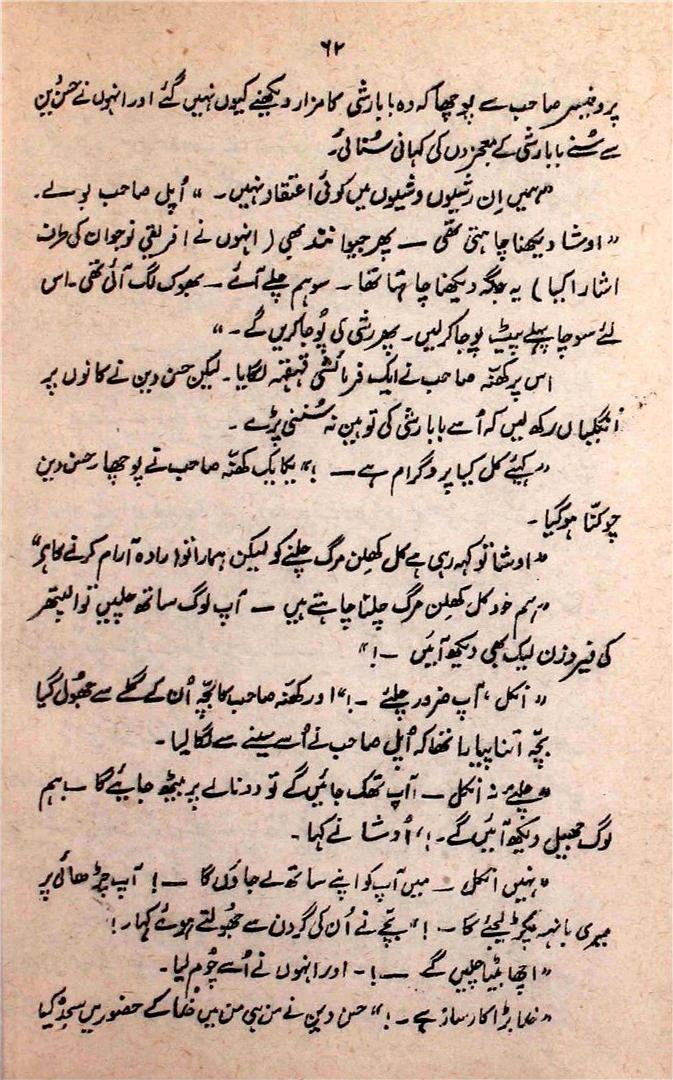 ۶۲
پروفیسر صاحب سے پوچھا کہ وہ بابا رشی کا مزار دیکھنے کیوں نہیں گئے اور انہوں نے حسن دین
سے سُنے بابا رشی کے معجزوں کی کہانی سُنائی۔
”ہمیں اِن رشیوں وشیوں میں کوئی اعتقاد نہیں۔“ اُپل صاحب بولے۔
”اوشا دیکھنا چاہتی تھی — پھر جیوانند بھی (انہوں نے افریقی نوجوان کی طرف
اشارا کیا) یہ جگہ دیکھنا چاہتا تھا۔ سو ہم چلے آئے۔ بھوک لگ آئی تھی۔ اس
لئے سوچا پہلے پیٹ پوجا کر لیں۔ پھر رشی کی پُوجا کریں گے۔“
اس پر کھنّہ صاحب نے ایک فرمائشی قہقہہ لگایا۔ لیکن حسن دین نے کانوں پر
اُنگلیاں رکھ لیں کہ اُسے بابا رشی کی توہین نہ سُننی پڑے۔
”کہئے کل کیا پروگرام ہے —!“ یکایک کھنّہ صاحب نے پوچھا۔ حسن دین
چوکنّا ہو گیا۔
”اوشا تو کہہ رہی ہے کل کھِلن مرگ چلنے کو لیکن ہمارا تو ارادہ آرام کرنے کا ہے“
”ہم خود کل کھِلن مرگ چلنا چاہتے ہیں — آپ لوگ ساتھ چلیں تو الپتھر
کی فیروزن لیک بھی دیکھ آئیں —!“
”انکل، آپ ضرور چلئے —!“ اور کھنّہ صاحب کا بچّہ اُن کے گلے سے جھُول گیا
بچّہ اتنا پیارا تھا کہ اُپل صاحب نے اُسے سینے سے لگا لیا۔
”چلئے نہ انکل — آپ تھک جائیں گے تو دو نالے پر بیٹھ جایئے گا — ہم
لوگ جھیل دیکھ آئیں گے۔!“ اُوشا نے کہا۔
”نہیں انکل — میں آپ کو اپنے ساتھ لے جاؤں گا —! آپ چڑھائی پر
میری بانہہ پکڑ لیجئے گا —!“ بچّے نے اُن کی گردن سے جھُولتے ہوئے کہا۔!
”اچھا بیٹا چلیں گے —!۔ اور انہوں نے اُسے چُوم لیا۔
”خدا بڑا کارساز ہے —!“ حسن دین نے من ہی من میں خدا کے حضور میں سجدہ کیا